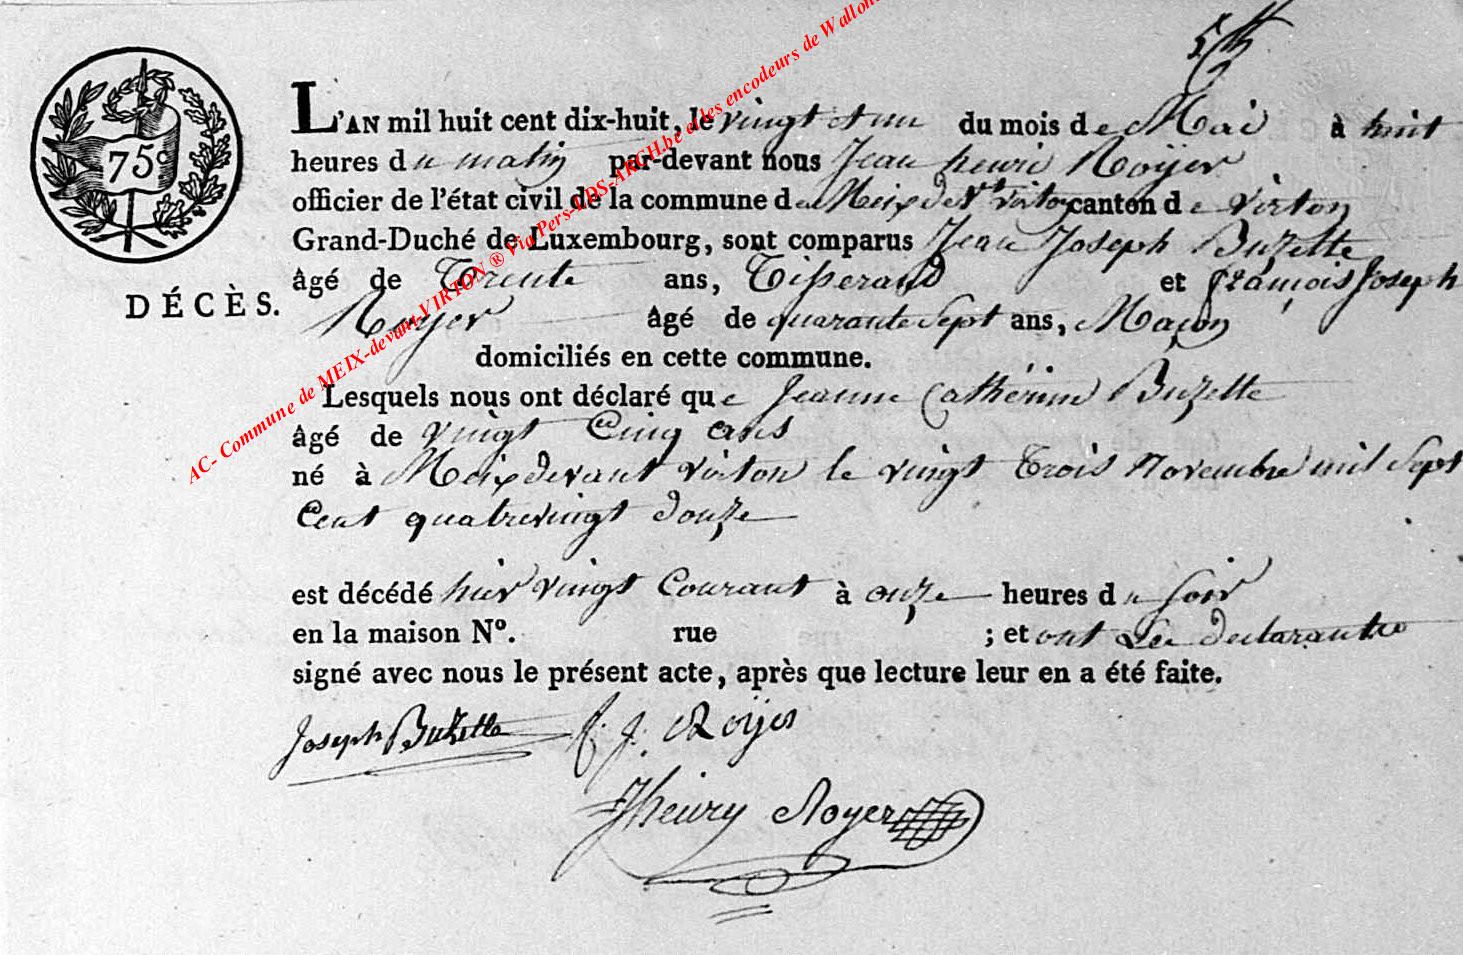 5
75c
DÉCÈS.
L'AN mil huit cent dix-huit, le vingt et un du mois de Mai à huit
heures du matin par-devant nous Jean henri Roÿer
officier de l'état civil de la commune de Meix devt virton canton de virton
Grand-Duché de Luxembourg, sont comparus Jean Joseph Buzette
âgé de Trente ans, Tisserand et françois Joseph
Royer âgé de quarante Sept ans, Maçon
domiciliés en cette commune.
Lesquels nous ont déclaré que Jeanne Catherine Buzette
âgé de vingt Cinq ans
né à Meix devant virton le vingt Trois Novembre mil Sept
Cent quatrevingt douze
est décédé hier vingt Courant à onze heures du Soir
en la maison No. rue ; et ont Les declarants
signé avec nous le présent acte, après que lecture leur en a été faite.
Joseph Buzette f. j. Roÿer
JHenry Royer
AC- Commune de MEIX-devant-VIRTON ® Via Pers-LDS-ARCH.be et les encodeurs de Wallon